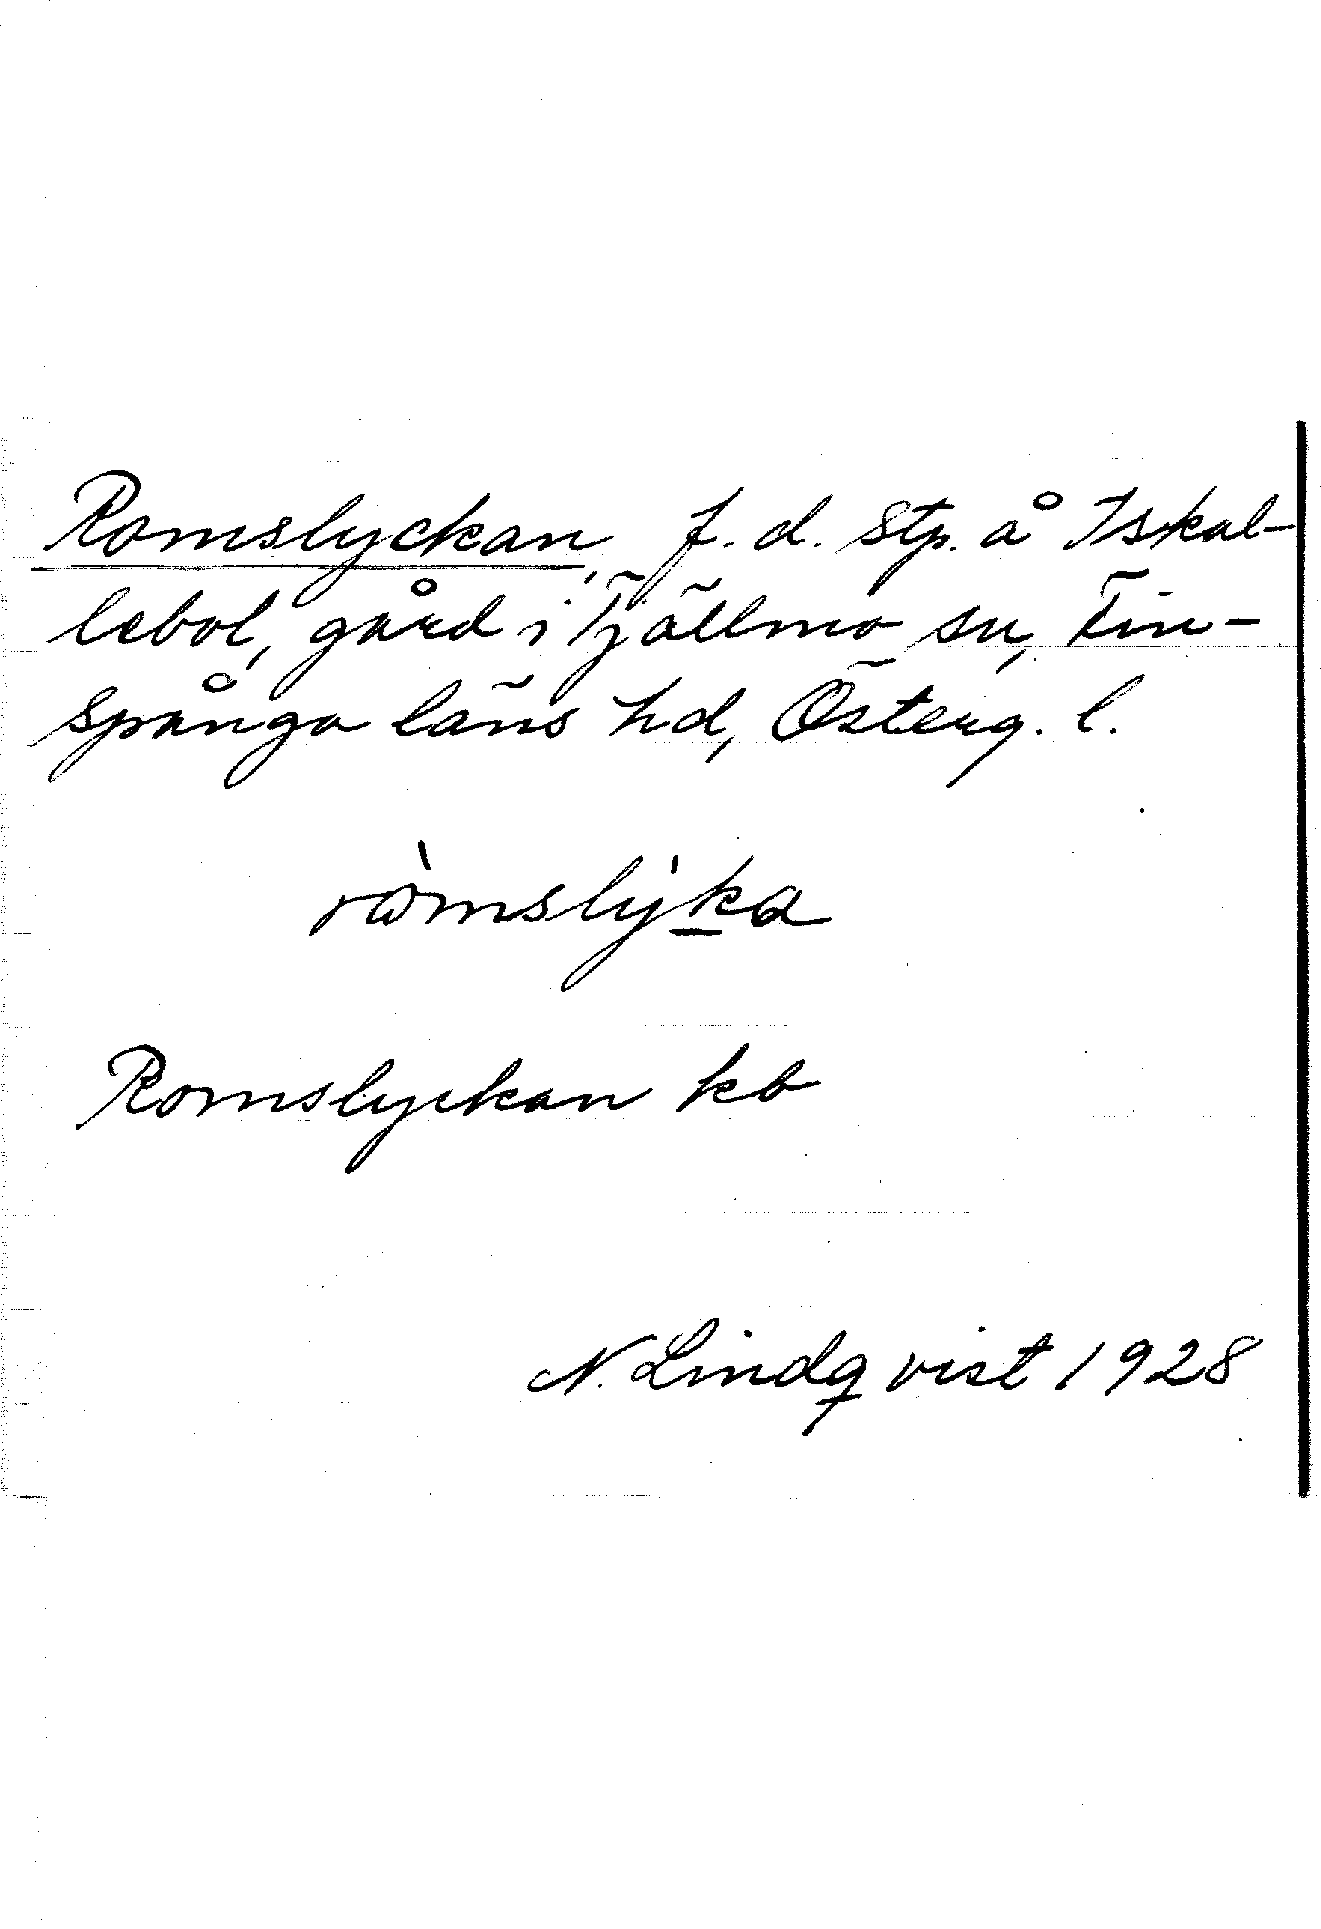 Romslyckan, f. d. stp. å Iskal-
lebol, gård i Tjällmo sn, Fin-
spånga läns hd, Österg. l.
ròmslyka
Romslyckan kb
N. Lindqvist 1928